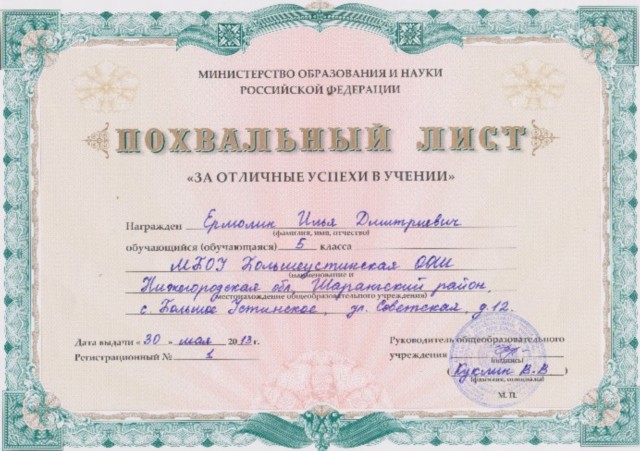 МИНИСТЕРСТВО ОБРАЗОВАНИЯ И НАУКИ
РОССИЙСКОЙ ФЕДЕРАЦИИ
ПОХВАЛЬНЫЙ ЛИСТ
«ЗА ОТЛИЧНЫЕ УСПЕХИ В УЧЕНИИ»
Награжден Ермолин Илья Дмитриевич
(фамилия, имя, отчество)
обучающийся (обучающаяся) 5 класса
МБОУ Большеустинская ООШ
(наименование и
Нижегородская обл, Шарангский район,
местонахождение общеобразовательного учреждения)
с. Большое Устинское, ул. Советская, д. 12.
Дата выдачи «30» мая 2013г.
Регистрационный № 1
Руководитель общеобразовательного
учреждения
(подпись)
(Куклин В.В)
(фамилия, инициалы)
М.П.